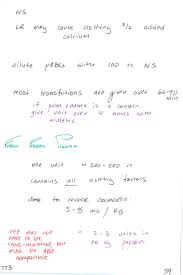 NS
LR may cause clotting 2/2 added
calcium
dilute pRBCs with 100 cc NS
most transfusions are given over 60-90
min
if is a concern
give unit over 4 hours with
Fresh Frozen Plasma
one unit = 200-250 cc
contains all clotting factors
dose to reverse coumadin:
5-8 mL / kg
FFP does not
need to be
cross-matched but
must be ABO
compatible
= 2-3 units in
70 kg person
773